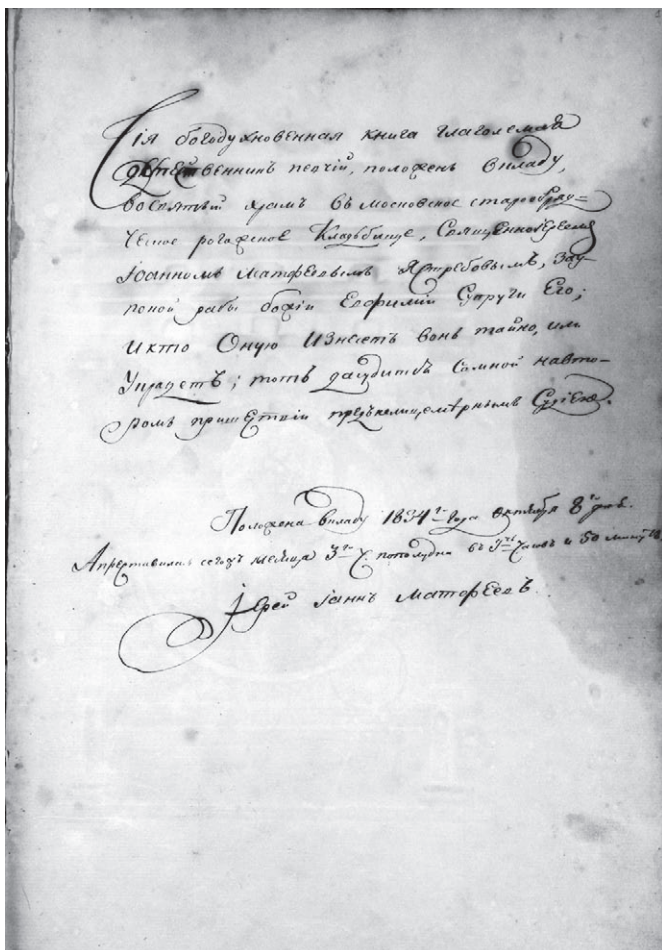 Сія богодухновенная книга глаголемая
дружественникъ певчій, положенъ вкладу,
восвятый храмъ въ московское старообряд=
ческое рогожское Кладьбище, Священноіереемъ
Іоанномъ Матфеевымъ Ястребовымъ, зау-
покой рабы божіи Евфиміи Супруги Его;
Ихто Оную Изнесетъ вонъ тайно, или
Украдетъ; тотъ дасудится Сомной навто-
ромъ пришествіи предънелицемѣрнымъ Судіею.
Положена вкладу 1834 го Года октября 8 дня.
Апреставилась сегожъ месяца 3 го Ч. пополудни въ Часовъ и 50 минутъ
Іерей Іоаннъ Матфеевъ.